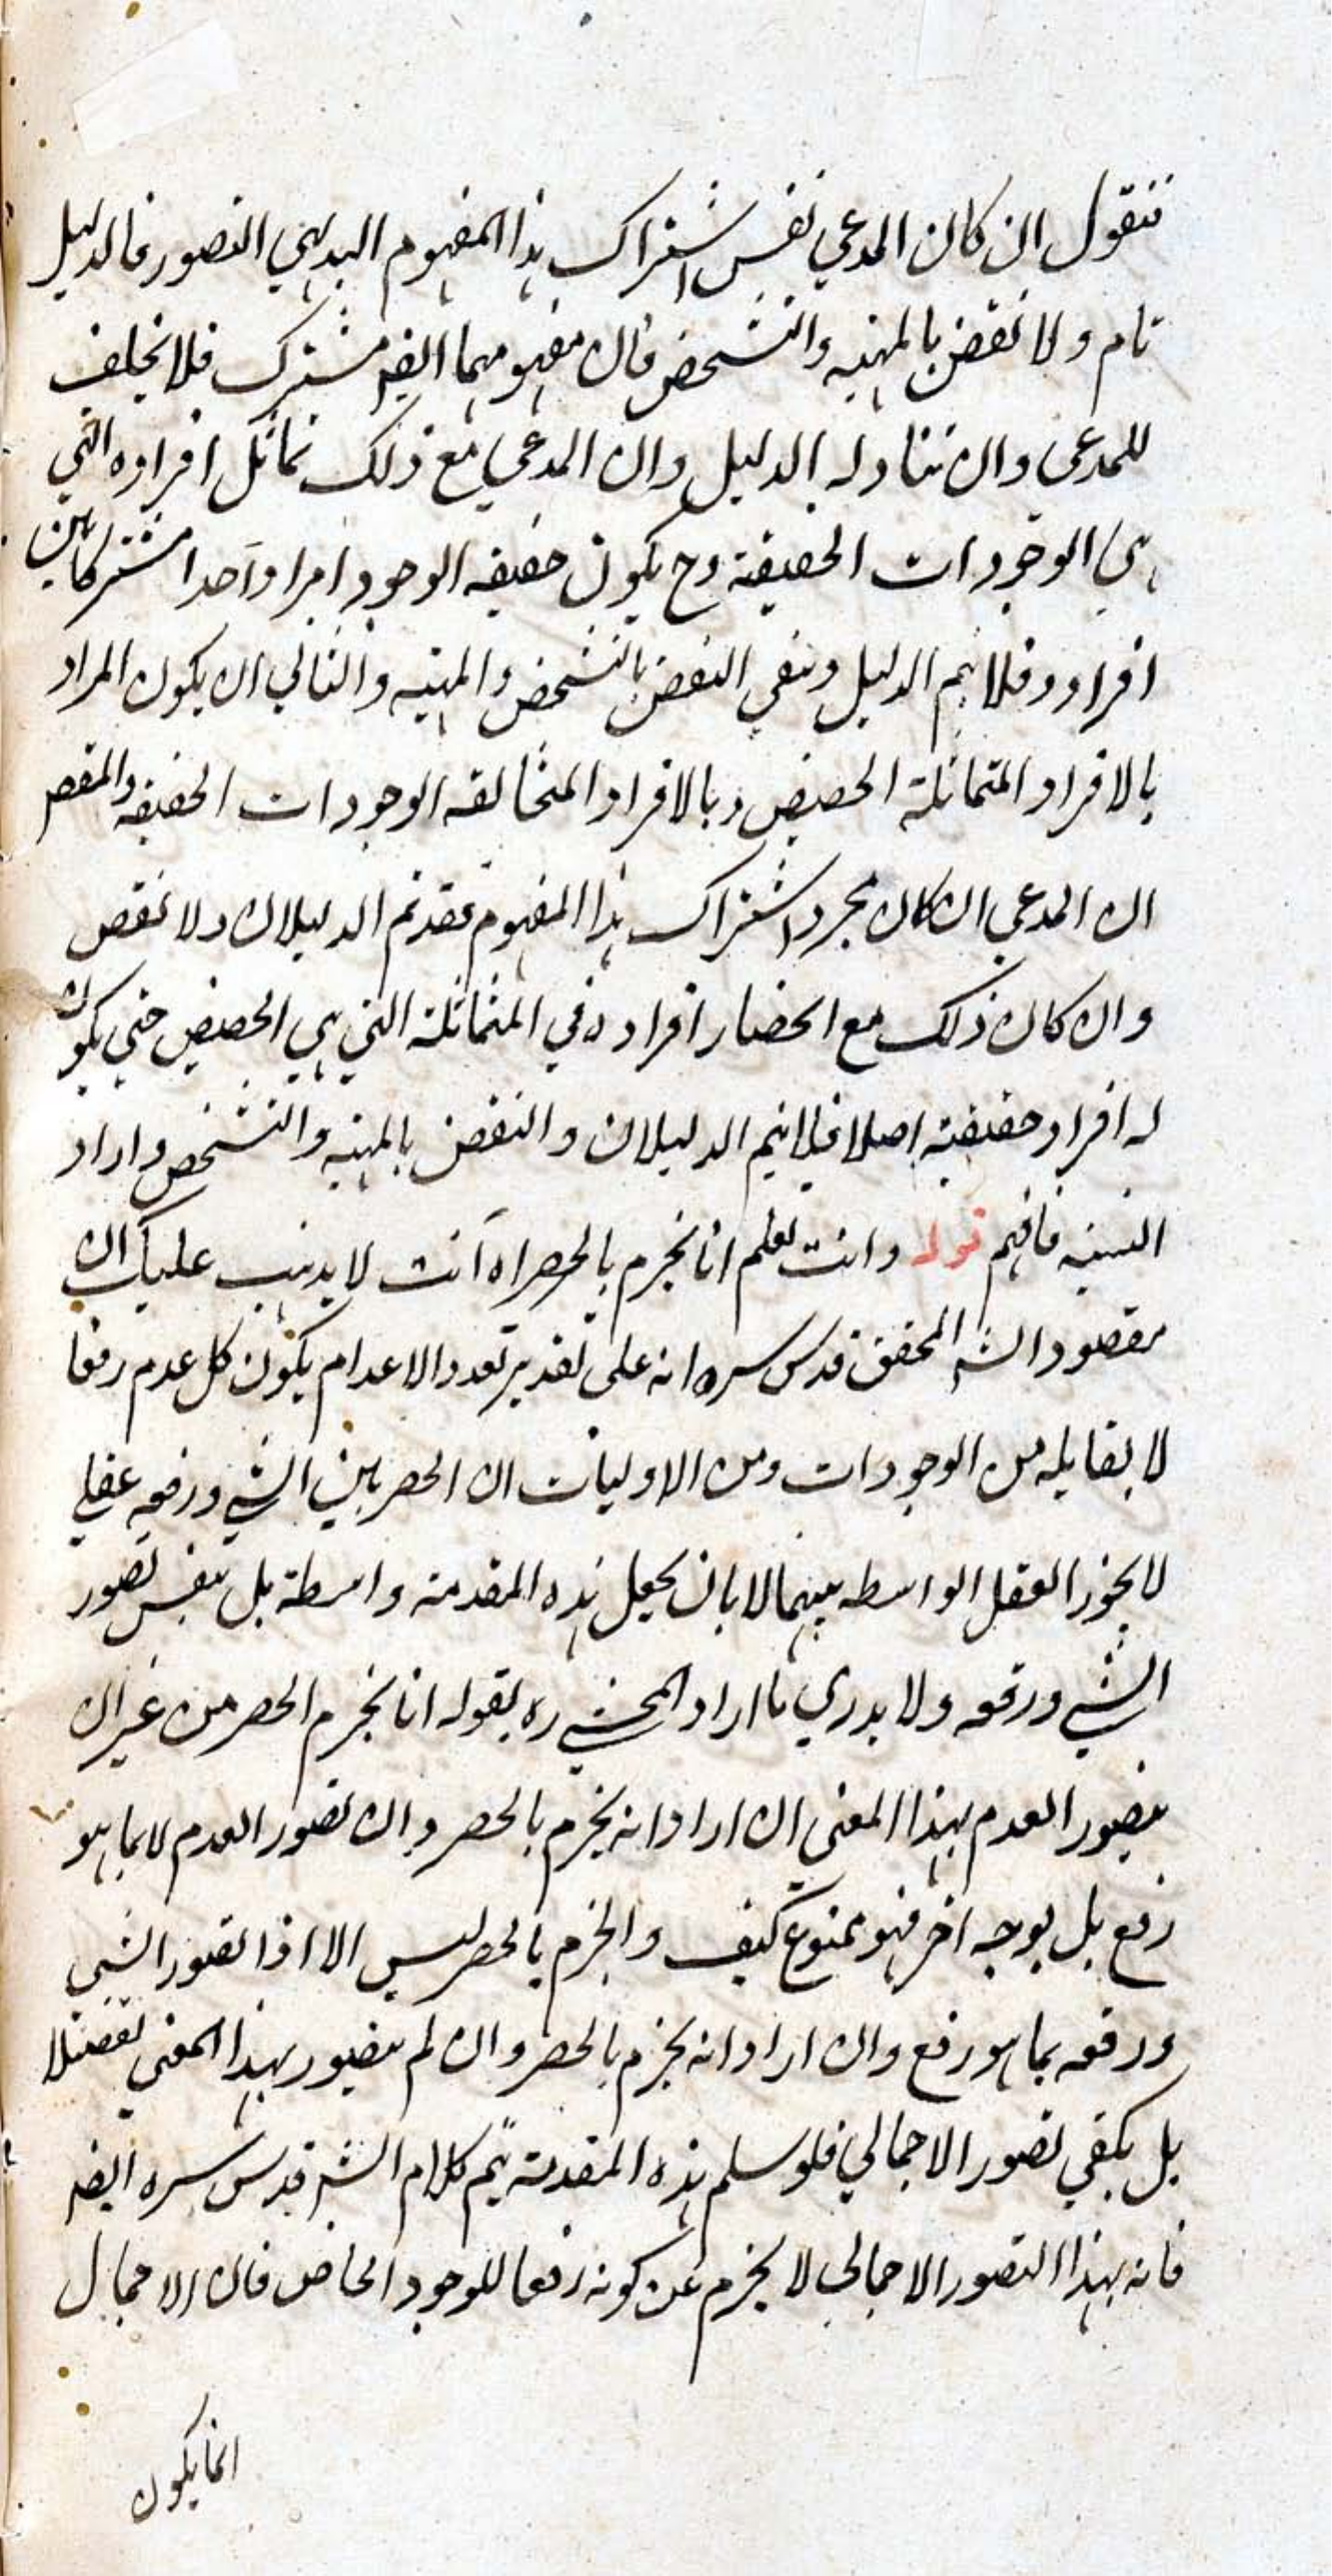 فنقول ان كان المدعي نفس اشتراك هذا المفهوم البديهي التصور فالدليل
تام ولا نقض بالمهية والتشخص فان مفهومهما ايضا مشترك فلا تخلف
للمدعى وان تناوله الدليل وان المدعي مع ذلك تماثل افراده التي
هي الوجودات الحقيقة وح يكون حقيقة الوجود امرا واحدا مشتركا بين
افراده فلا يتم الدليل وبنفي النقض بالتشخص والمهية والثاني ان يكون المراد
بالافراد المتماثلة الحصص وبالافراد المتخالفة الوجودات الحقيقة والمقصـ
ان المدعي ان كان مجرد اشتراك هذا المفهوم فقد تم الدليلان ولا نقض
وان كان ذلك مع انحصار افراده في المتماثلة التي هي الحصص حتى يكون
له افراد حقيقية اصلا فلا يتم الدليلان والنقض بالمهية والتشخص وارد
البتة فافهم قوله وانت تعلم انا نجزم بالحصر اه انت لا يذهب عليك ان
مقصود الشـ المحقق قدس سره انه على تقدير تعدد الاعدام يكون كل عدم رفعا
لا يقابله من الوجودات ومن الاوليات ان الحصر بين الشي ورفعه عقلي
لا يجوز العقل الواسطه بينهما لا بان يجعل هذه المقدمة واسطة بل بنفس تصور
الشي ورفعه ولا يدري ما اراد المحشي ره بقوله انا نجزم الحصر من غير ان
نتصور العدم بهذا المعنى ان اراد انه يجزم بالحصر وان تصور العدم لا بما هو
رفع بل بوجه اخر فهو ممنوع كيف والجزم بالحصر ليس الا اذا تصور الشي
ورفعه بما هو رفع وان اراد انه يجزم بالحصر وان لم يتصور بهذا المعنى تفصيلا
بل يكفي تصور الاجمالي فلو سلم هذه المقدمة يتم كلام الشـ قدس سره ايضا
فانه بهذا التصور الاجمالي لا يخرج عن كونه رفعا للوجود الخاص فان الاجمال
انما يكون